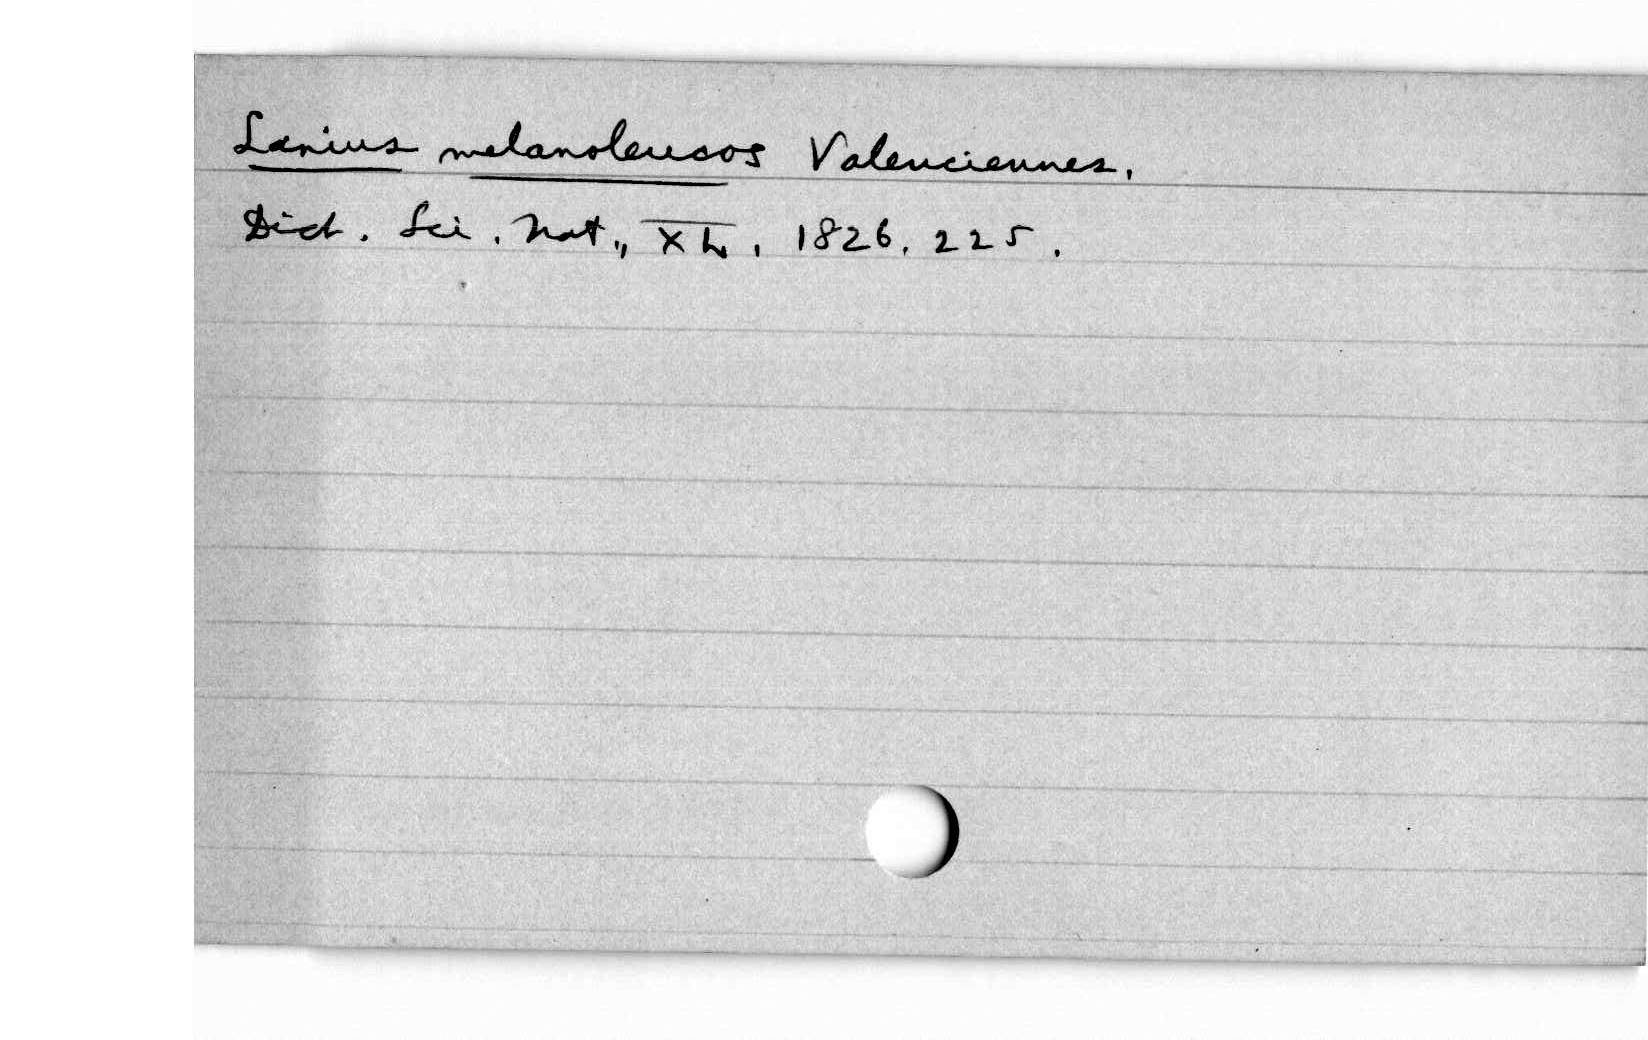 Lanius melanoleucos Valenciennes.
Dict. Sci. Nat., XL, 1826, 225.